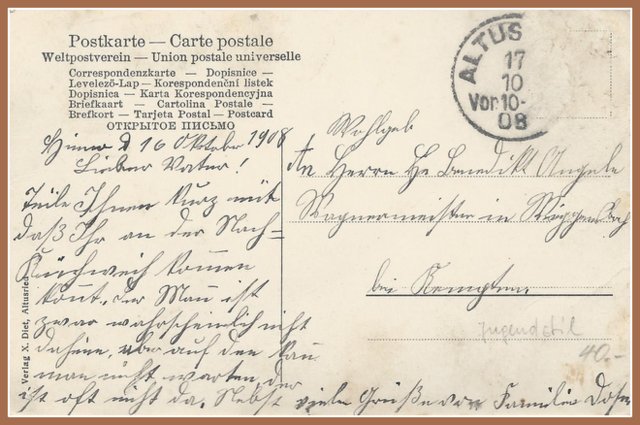 Postkarte — Carte postale
Weltpostverein — Union postale universelle
Correspondenzkarte — Dopisnice —
Levelező-Lap — Korespondenční listek
Dopisnica — Karta Korespondencyjna
Briefkaart — Cartolina Postale —
Brefkort — Tarjeta Postal — Postcard
ОТКРЫТОЕ ПИСЬМО
ALTUS
17
10
Vor10-
08
d 16 Oktober 1908
Lieber Vater!
Teile Ihnen kurz mit
daß Ihr an der Nach-
Kirchweih kommen
könnt. Der Mann ist
zwar wahrscheinlich nicht
daheim, aber auf den kann
man nicht warten, der
ist oft nicht da. Nebst viele Grüße von Familie
Wohlgeb
An Herrn Benedikt Angele
Wagnermeister in
bei Kempten
Jugendstil
40.-
Verlag X. Diet, Altusried